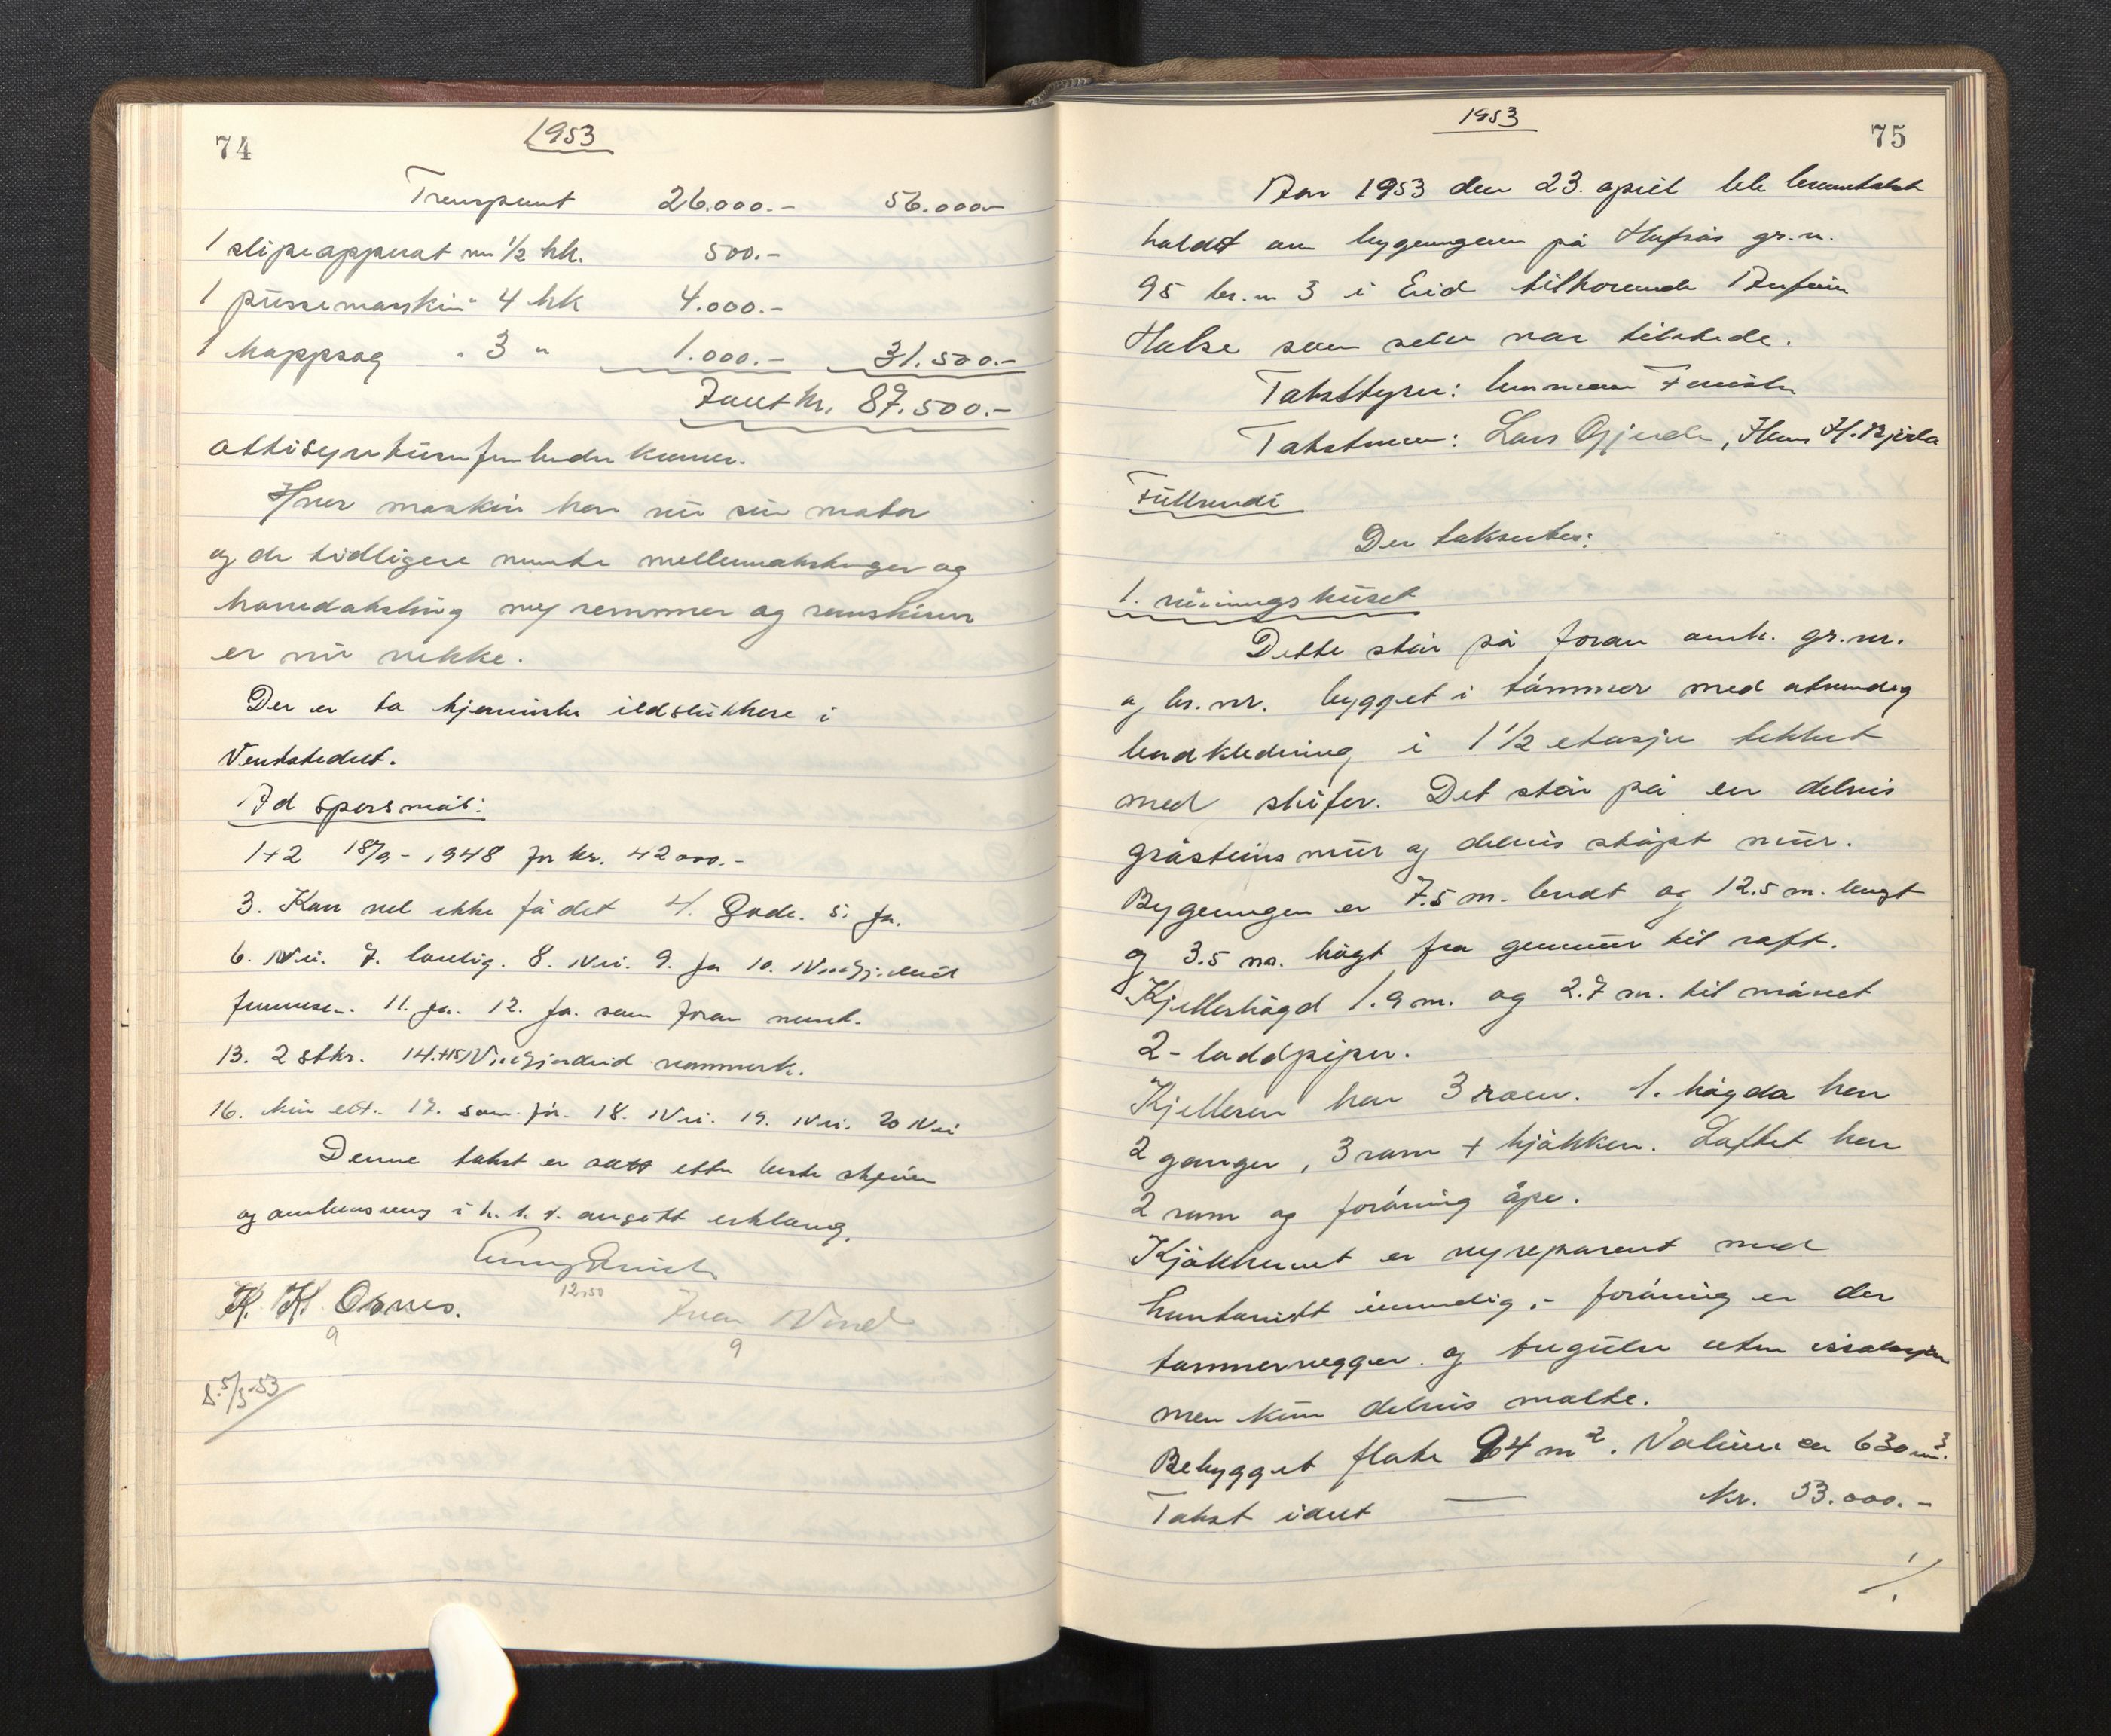 74
1953
Transport 26.000.- 56.000.-
1 slipeapparat m 1/2 hk. 500.-
1 pussemaskin " 4 hk 4.000.-
1 kappsag " 3 " 1.000.- 31.500.-
Ialt kr. 87.500.-
Hver maskin har nu sin motor
og de tidligere nevnte mellemakslinger og
hovedaksling med remmer og remskiver
er nu vekke.
Der er to kjemiske ildslukkere i
Verkstedet.
Ad spørsmål:
1+2 18/9 - 1948 for kr. 42000.-
3. Kan vel ikke få det 4. Gode. 5. Ja.
6. Nei. 7. lovlig. 8. Nei. 9. Ja 10. Nordfjordeid
11. Ja. 12. Ja. som foran nevnt.
13. 2 stkr. 14.+15 Nordfjordeid
16. 17. som før. 18. Nei. 19. Nei. 20 Nei
Denne takst er satt etter beste skjønn
og i h. t. avgitt erklæring.
K. K. Osnes. 12.50
9 9
8.5/5-53
1953
75
Aar 1953 den 23. april ble branntakst
holdt over bygningene på gr.n.
95 br.n 3 i Eid tilhørende
Halse som selv var tilstede.
Takstbyrer:
Takstmenn: Lars Gjerde, Hans H.
Der takseres:
1. våningshuset
Dette står på foran anh. gr.nr.
og br.nr. bygget i tømmer med utvendig
bordkledning i 1 1/2 etasje tekket
med skifer. Det står på en delvis
gråsteins mur og delvis støpt mur.
Bygningen er 7.5 m. bredt og 12.5 m. langt
og 3.5 m. høgt fra grunnmur til raft.
Kjellerhøgd 1.9 m. og 2.7 m. til mønet
2- laddpiper.
Kjelleren har 3 rom. 1. høgda har
2 ganger, 3 rom + kjøkken. Loftet har
2 rom og forøvrig åpe.
Kjøkkenet er nyreparert med
huntonitt innvendig, - forøvrig er der
tømmervegger og tregulv uten
men kun delvis malte.
Bebygget flate 94 m². Volum er 630 m³.
Takst idet — kr. 33.000.-